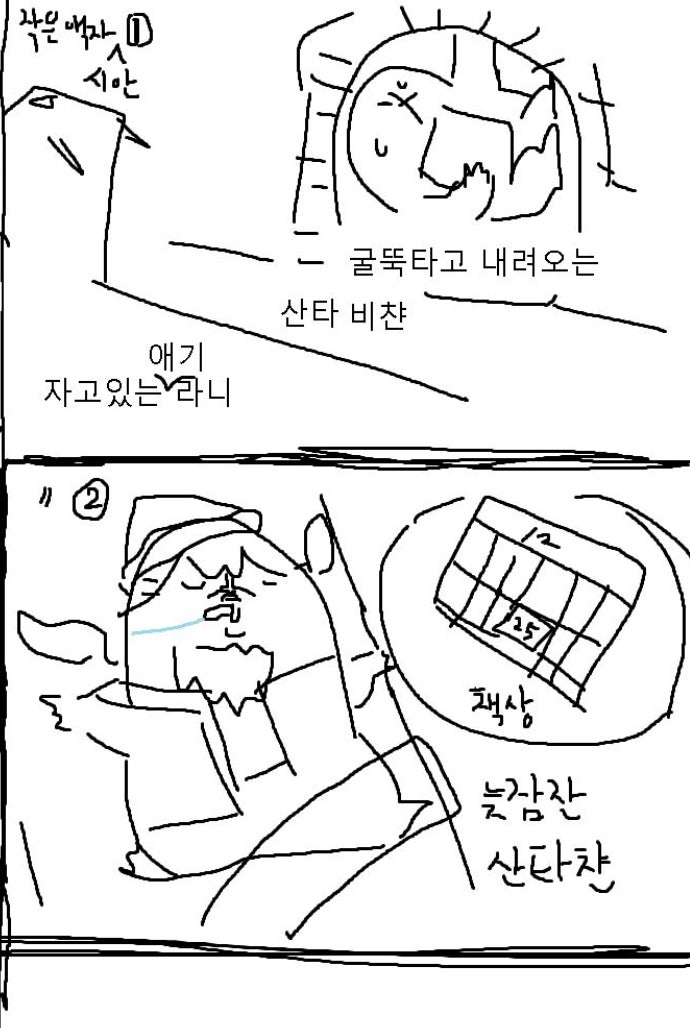 작은 액자 1
시안
굴뚝타고 내려오는
산타 비챤
애기
자고있는 라니
〃 2
쿨
12
25
책상
늦잠잔
산타챤